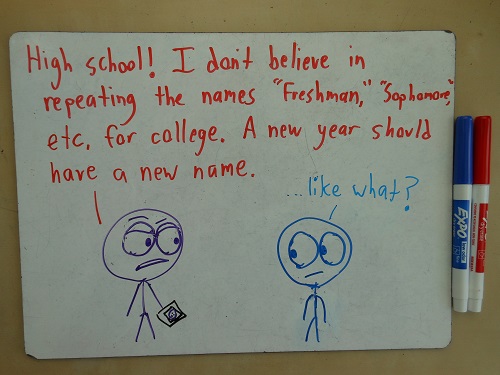 High school! I don't believe in
repeating the names "Freshman," "Sophomore,"
etc. for college. A new year should
have a new name.
...like what?
EXPO